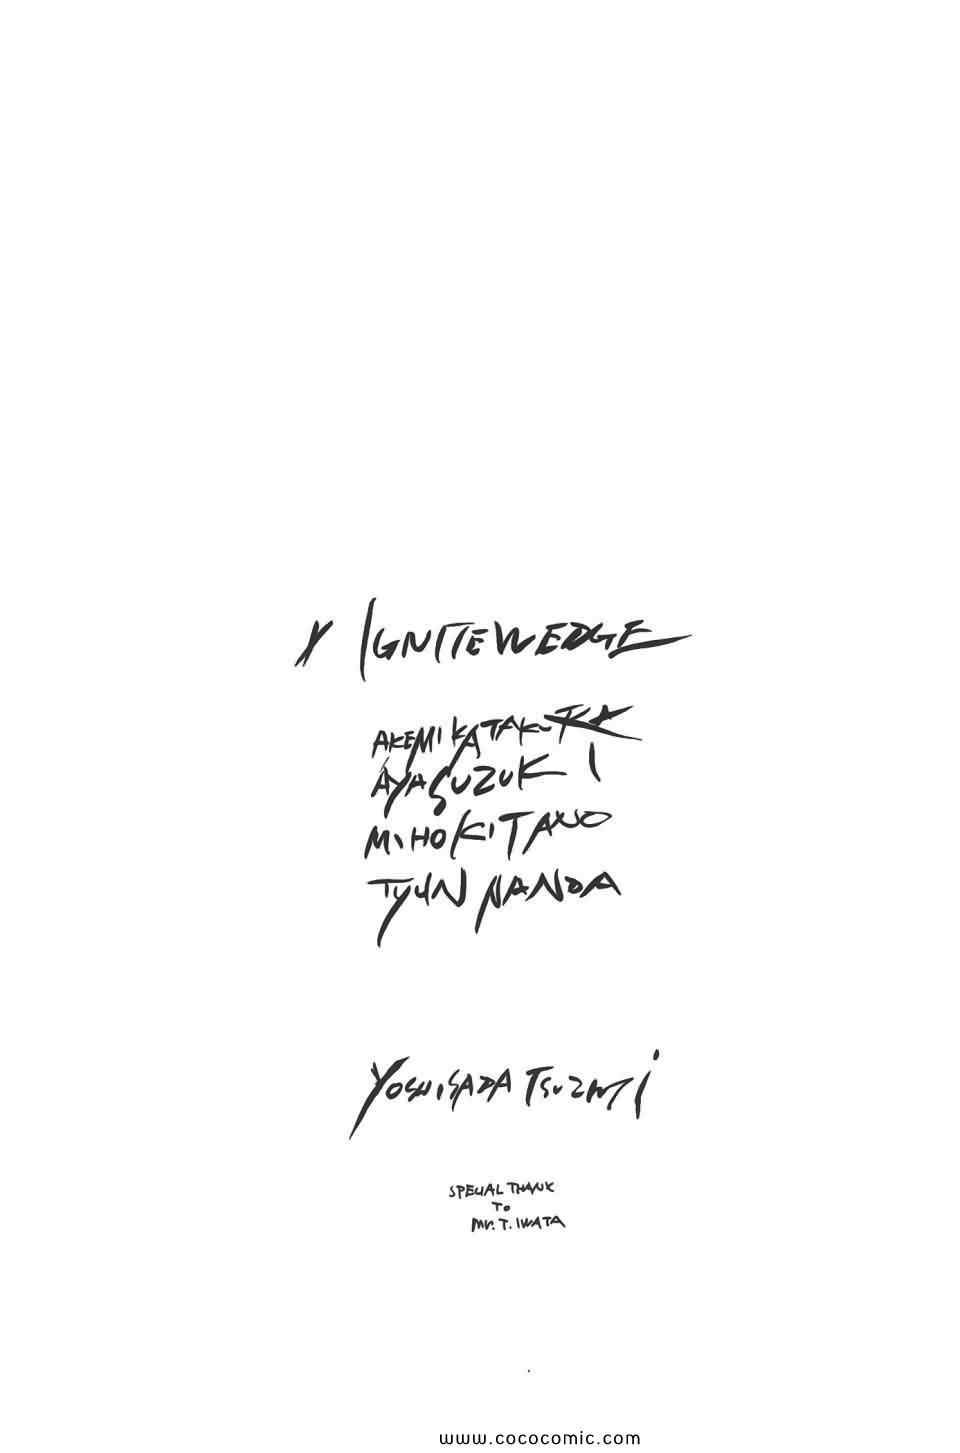 X IGNITEWEDGE
AKEMI KATAKU
AYA SUZUKI
MIHO KITANO
TYUN NANDA
YOSHISADA TSUZUKI
SPECIAL THANK
To
Mr. T. IWATA
www.cococomic.com